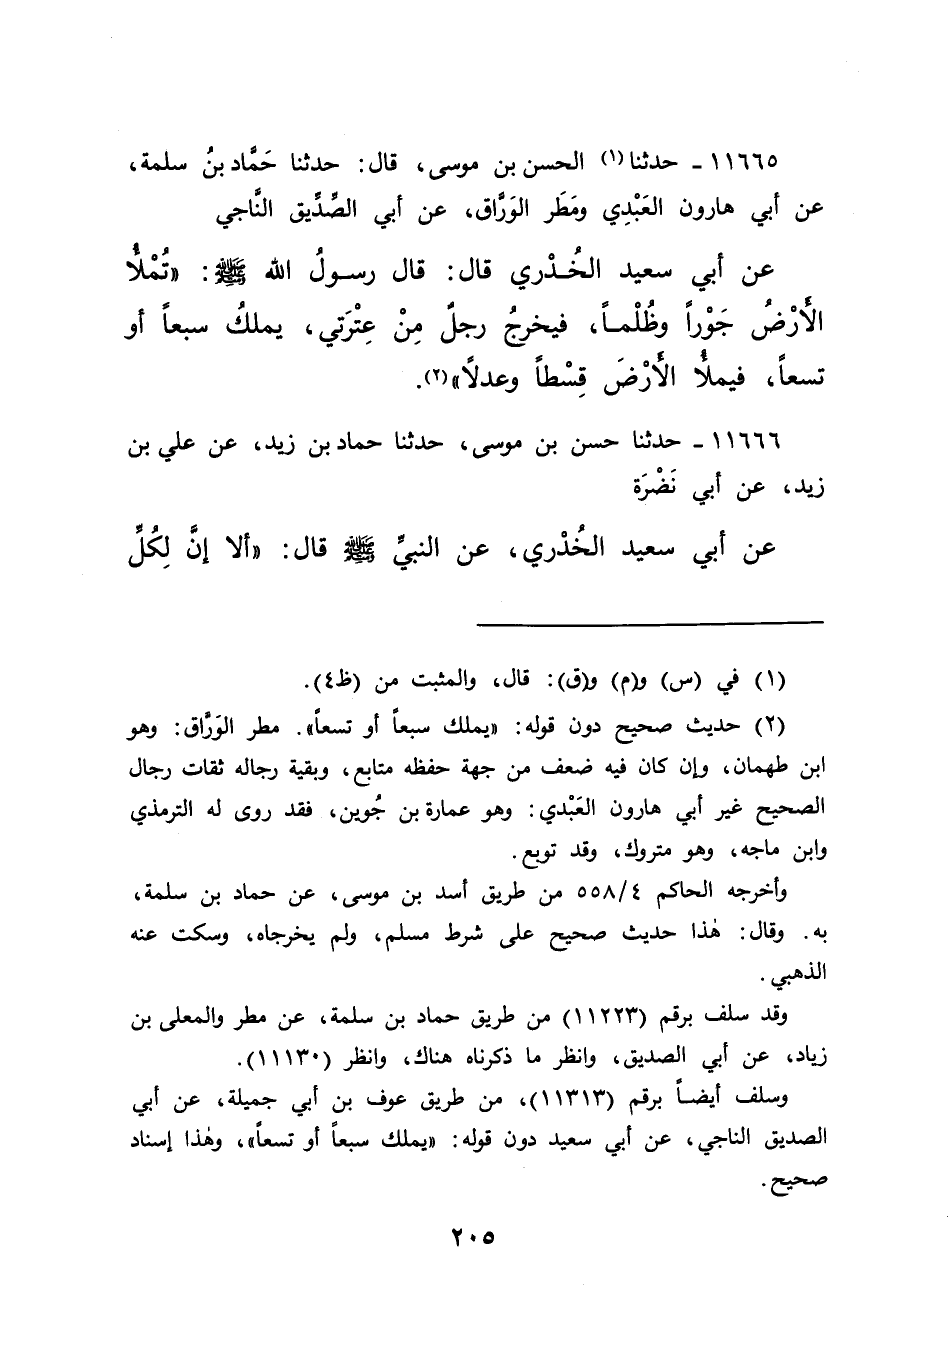 ١١٦٦٥ ـ حدثنا(١) الحسن بن موسى، قال: حدثنا حَمَّاد بنُ سلمة،
عن أبي هارون العَبْدِي ومَطَر الوَرَّاق، عن أبي الصِّدِّيق النَّاجي
عن أبي سعيد الخُدْري قال: قال رسولُ الله ﷺ: «تُمْلأُ
الأَرْضُ جَوْراً وظُلْماً، فيخرجُ رجلٌ مِنْ عِتْرَتي، يملكُ سبعاً أو
تسعاً، فيملأُ الأَرْضَ قِسْطاً وعدلًا»(٢).
١١٦٦٦ ـ حدثنا حسن بن موسى، حدثنا حماد بن زيد، عن علي بن
زيد، عن أبي نَضْرَة
عن أبي سعيد الخُدْري، عن النبيِّ ﷺ قال: «ألا إنَّ لِكُلِّ
(١) في (س) و(م) و(ق): قال، والمثبت من (ظ٤).
(٢) حديث صحيح دون قوله: «يملك سبعاً أو تسعاً». مطر الوَرَّاق: وهو
ابن طهمان، وإن كان فيه ضعف من جهة حفظه متابع، وبقية رجاله ثقات رجال
الصحيح غير أبي هارون العَبْدي: وهو عمارة بن جُوين، فقد روى له الترمذي
وابن ماجه، وهو متروك، وقد توبع.
وأخرجه الحاكم ٥٥٨/٤ من طريق أسد بن موسى، عن حماد بن سلمة،
به. وقال: هٰذا حديث صحيح على شرط مسلم، ولم يخرجاه، وسكت عنه
الذهبي.
وقد سلف برقم (١١٢٢٣) من طريق حماد بن سلمة، عن مطر والمعلى بن
زياد، عن أبي الصديق، وانظر ما ذكرناه هناك، وانظر (١١١٣٠).
وسلف أيضاً برقم (١١٣١٣)، من طريق عوف بن أبي جميلة، عن أبي
الصديق الناجي، عن أبي سعيد دون قوله: «يملك سبعاً أو تسعاً»، وهٰذا إسناد
صحيح.
٢٠٥